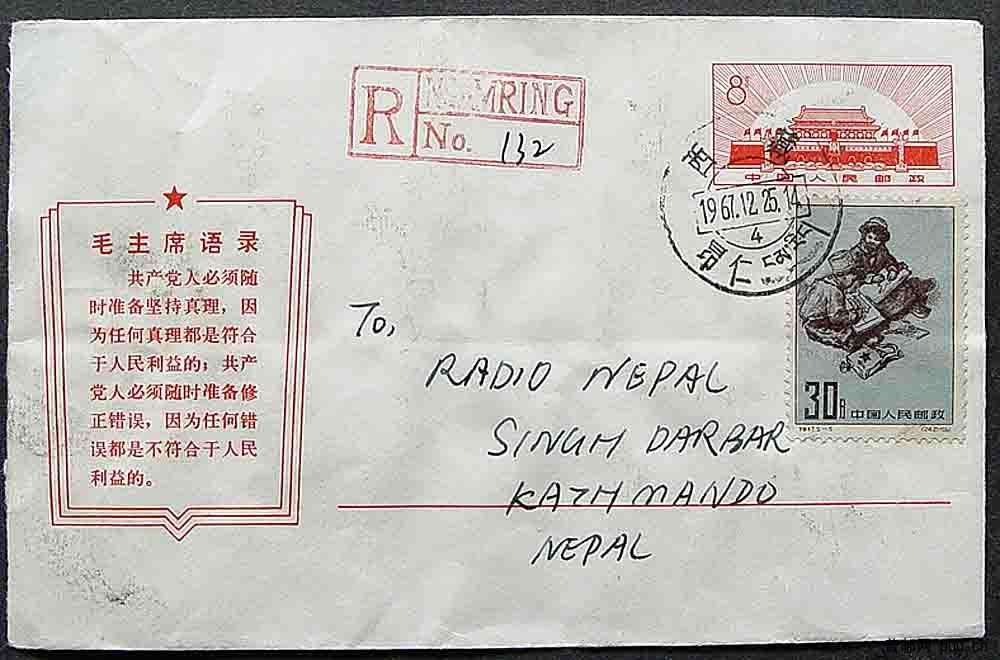 R
No. 132
8分
中国人民邮政
西藏
1967.12.25.14
4
昂仁
30分 中国人民邮政
毛主席语录
共产党人必须随
时准备坚持真理,因
为任何真理都是符合
于人民利益的;共产
党人必须随时准备修
正错误,因为任何错
误都是不符合于人民
利益的。
To,
RADIO NEPAL
SINGH DARBAR
KATHMANDO
NEPAL